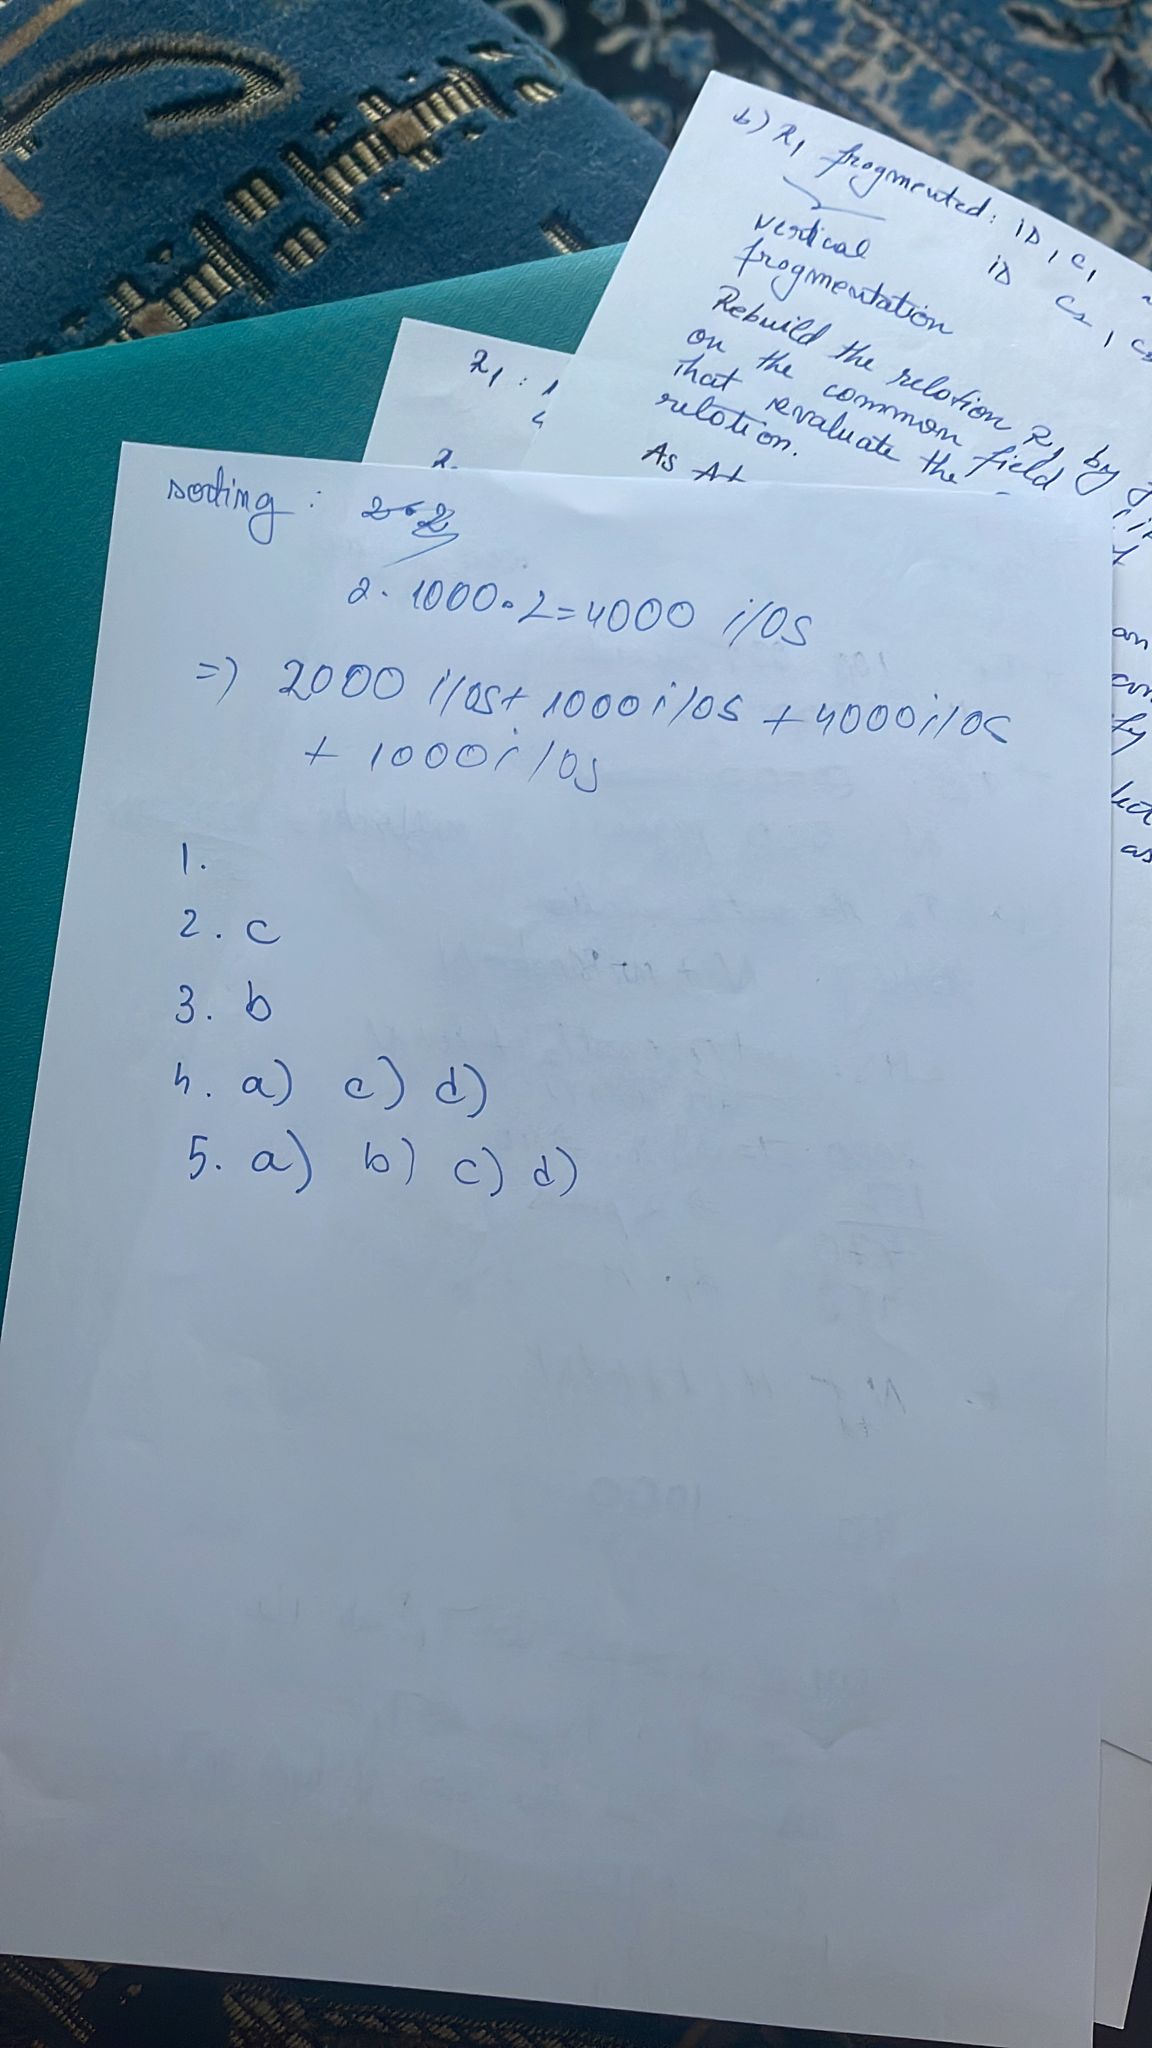 b) R1 fragmented: ID, C1
ID C2, C3
vertical
fragmentation
Rebuild the relation R1 by
on the common field
that evaluate the
relation.
As At
R1 : 1
4
2.
sorting :
2. 1000.2=4000 i/os
=) 2000 i/os+ 1000 i/os + 4000 i/os
+ 1000 i/os
1.
2. c
3. b
4. a) c) d)
5. a) b) c) d)
an
con
fy
as